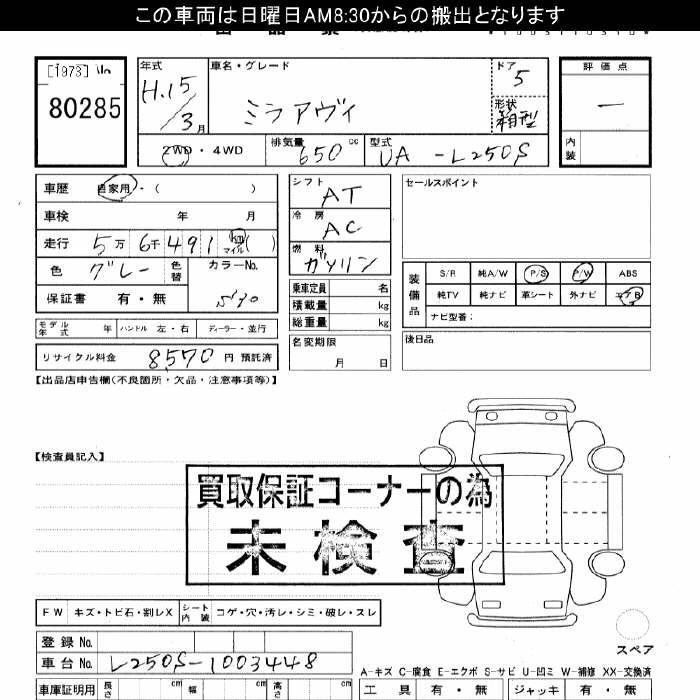 この車両は日曜日AM8:30からの搬出となります
[1973]
80285
年式
H.15/3月
車名・グレード
ミラアヴィ
ドア
5
形状
箱型
評価点
一
内装
2WD・4WD
排気量
650cc
型式
UA-L250S
車歴 自家用・( )
車検 年 月
走行 5万6千491 km マイル ( )
色 グレー 色替 カラーNo. S10
保証書 有・無
シフト
AT
冷房
AC
燃料
ガソリン
乗車定員 名
積載量 kg
総重量 kg
セールスポイント
装備品
S/R 純A/W P/S P/W ABS
純TV 純ナビ 革シート 外ナビ エアB
ナビ型番:
モデル年式 年 ハンドル 左・右 ディーラー・並行
名変期限
月 日
後日品
リサイクル料金 8570 円 預託済
【出品店申告欄(不良箇所・欠品・注意事項等)】
【検査員記入】
買取保証コーナーの為
未検査
FW キズ・トビ石・割レX シート内装 コゲ・穴・汚レ・シミ・破レ・スレ
スペア
登録No.
車台No. L250S-1003448
A-キズ C-腐食 E-エクボ S-サビ U-凹ミ W-補修 XX-交換済
車庫証明用 長さ cm 幅 cm 高さ cm
工具 有・無 ジャッキ 有・無